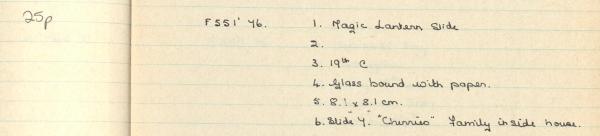 25p
FSSI' 76. 1. Magic Lantern Slide
2.
3. 19th C
4. Glass bound with paper.
5. 8.1 x 8.1 cm.
6. Slide 4. "Cherries" Family inside house.